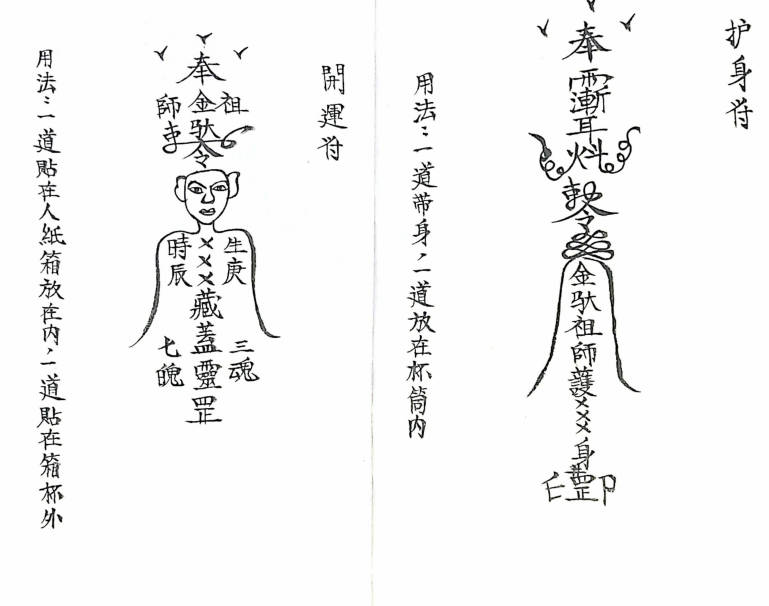 护身符
奉
勅令
金驮祖師護×××身罡
用法：一道带身，一道放在杯筒内
開運符
奉
祖師
金驮
勅令
生庚
時辰
×××藏蓋靈罡
三魂
七魄
用法：一道貼在人紙箱放在内，一道貼在箱杯外